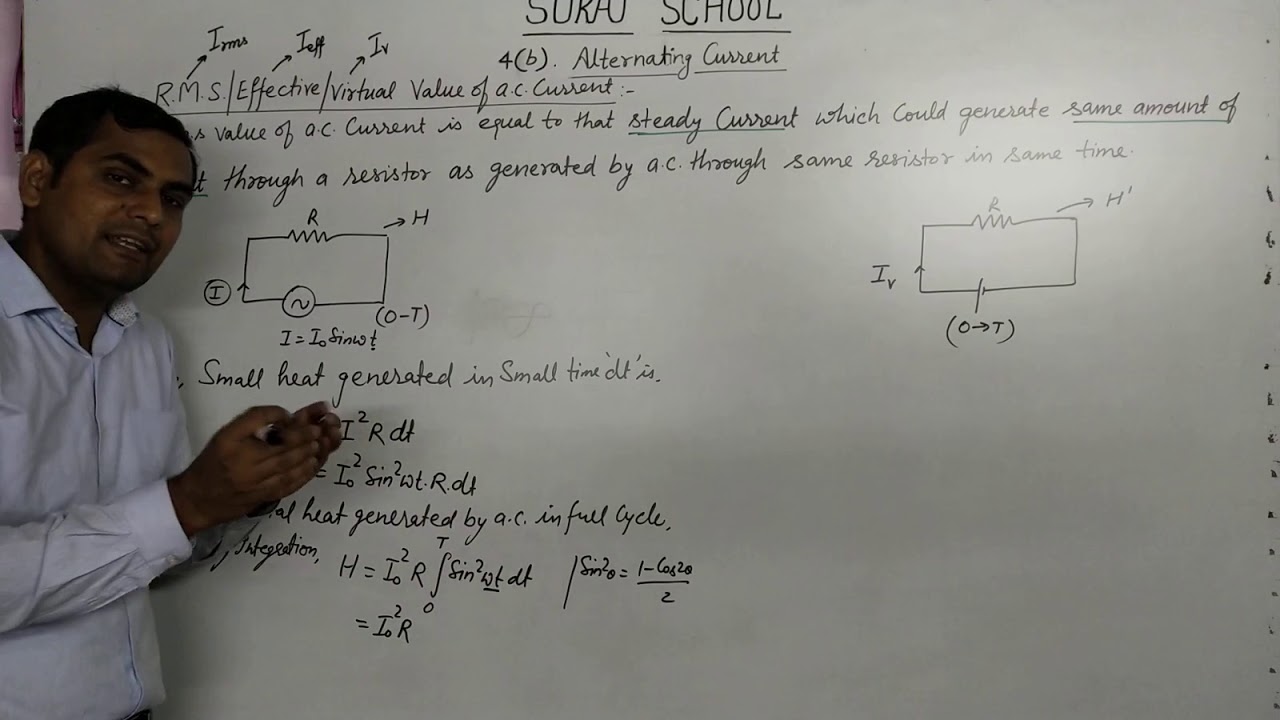 SURAJ SCHOOL
4(b). Alternating Current
Irms Ieff Iv
R.M.S./Effective/Virtual Value of a.c. Current :-
value of a.c. Current is equal to that steady Current which Could generate same amount of
through a resistor as generated by a.c. through same resistor in same time.
R → H
I
~
(0-T)
I = I₀ Sinωt
R → H'
Iv
(0→T)
Small heat generated in Small time 'dt' is.
I²R dt
= I₀² Sin²ωt.R.dt
heat generated by a.c. in full Cycle,
Integration,
H = I₀² R ∫₀ᵀ Sin²ωt dt | Sin²θ = 1-Cos2θ / 2
= I₀² R